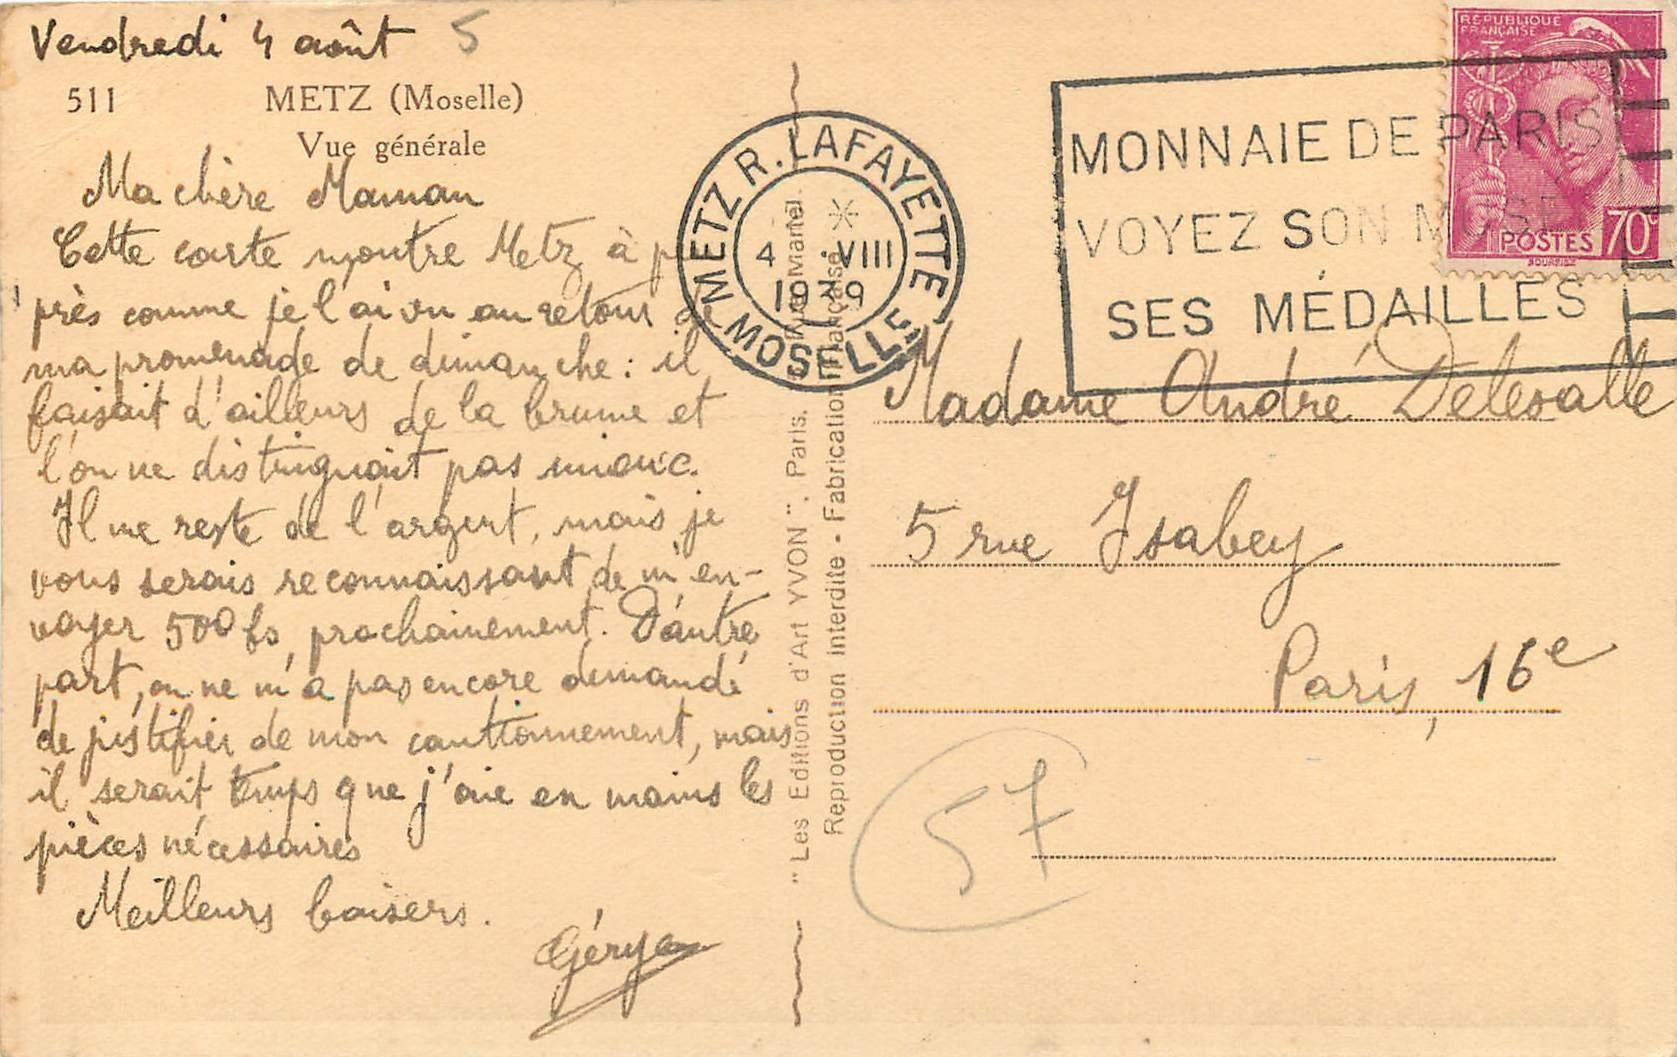 Vendredi 4 août
5
511 METZ (Moselle)
Vue générale
Ma chère Maman
Cette carte montre Metz à peu
près comme je l'ai vu au retour de
ma promenade de dimanche : il
faisait d'ailleurs de la brume et
l'on ne distinguait pas mieux.
Il me reste de l'argent, mais je
vous serais reconnaissant de m'en-
voyer 500 fs, prochainement. D'autre
part, on ne m'a pas encore demandé
de justifier de mon cautionnement, mais
il serait temps que j'aie en mains les
pièces nécessaires
Meilleurs baisers.
Géry
"Les Editions d'Art YVON", Paris.
Reproduction interdite - Fabrication Française
METZ R. LAFAYETTE
4 VIII
1939
MOSELLE
MONNAIE DE PARIS
VOYEZ SON MUSEE
SES MÉDAILLES
REPUBLIQUE
FRANÇAISE
POSTES 70c
Madame André Delesalle
5 rue Isabey
Paris, 16e
57